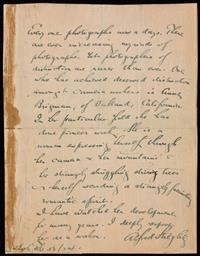 Every one photographs now a days. There
are ever increasing myriads of
photographs. Yet photographers of
distinction are rarer than ever. One
who has achieved deserved distinction
amongst camera workers is Annie
Brigman, of Oakland, California.
In her particular field she has
done pioneer work. She is a
woman expressing herself through
her camera & her mountains &
her strangely struggling striving trees
& herself revealing a strangely
romantic spirit.
I have watched her development
for many years. I deeply respect
her as a worker.
Alfred Stieglitz